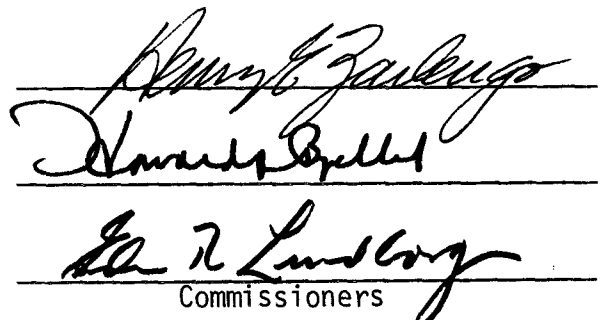 Henry E. Zarlengo
Howard S. Bjelland
Edwin R. Lundborg
Commissioners